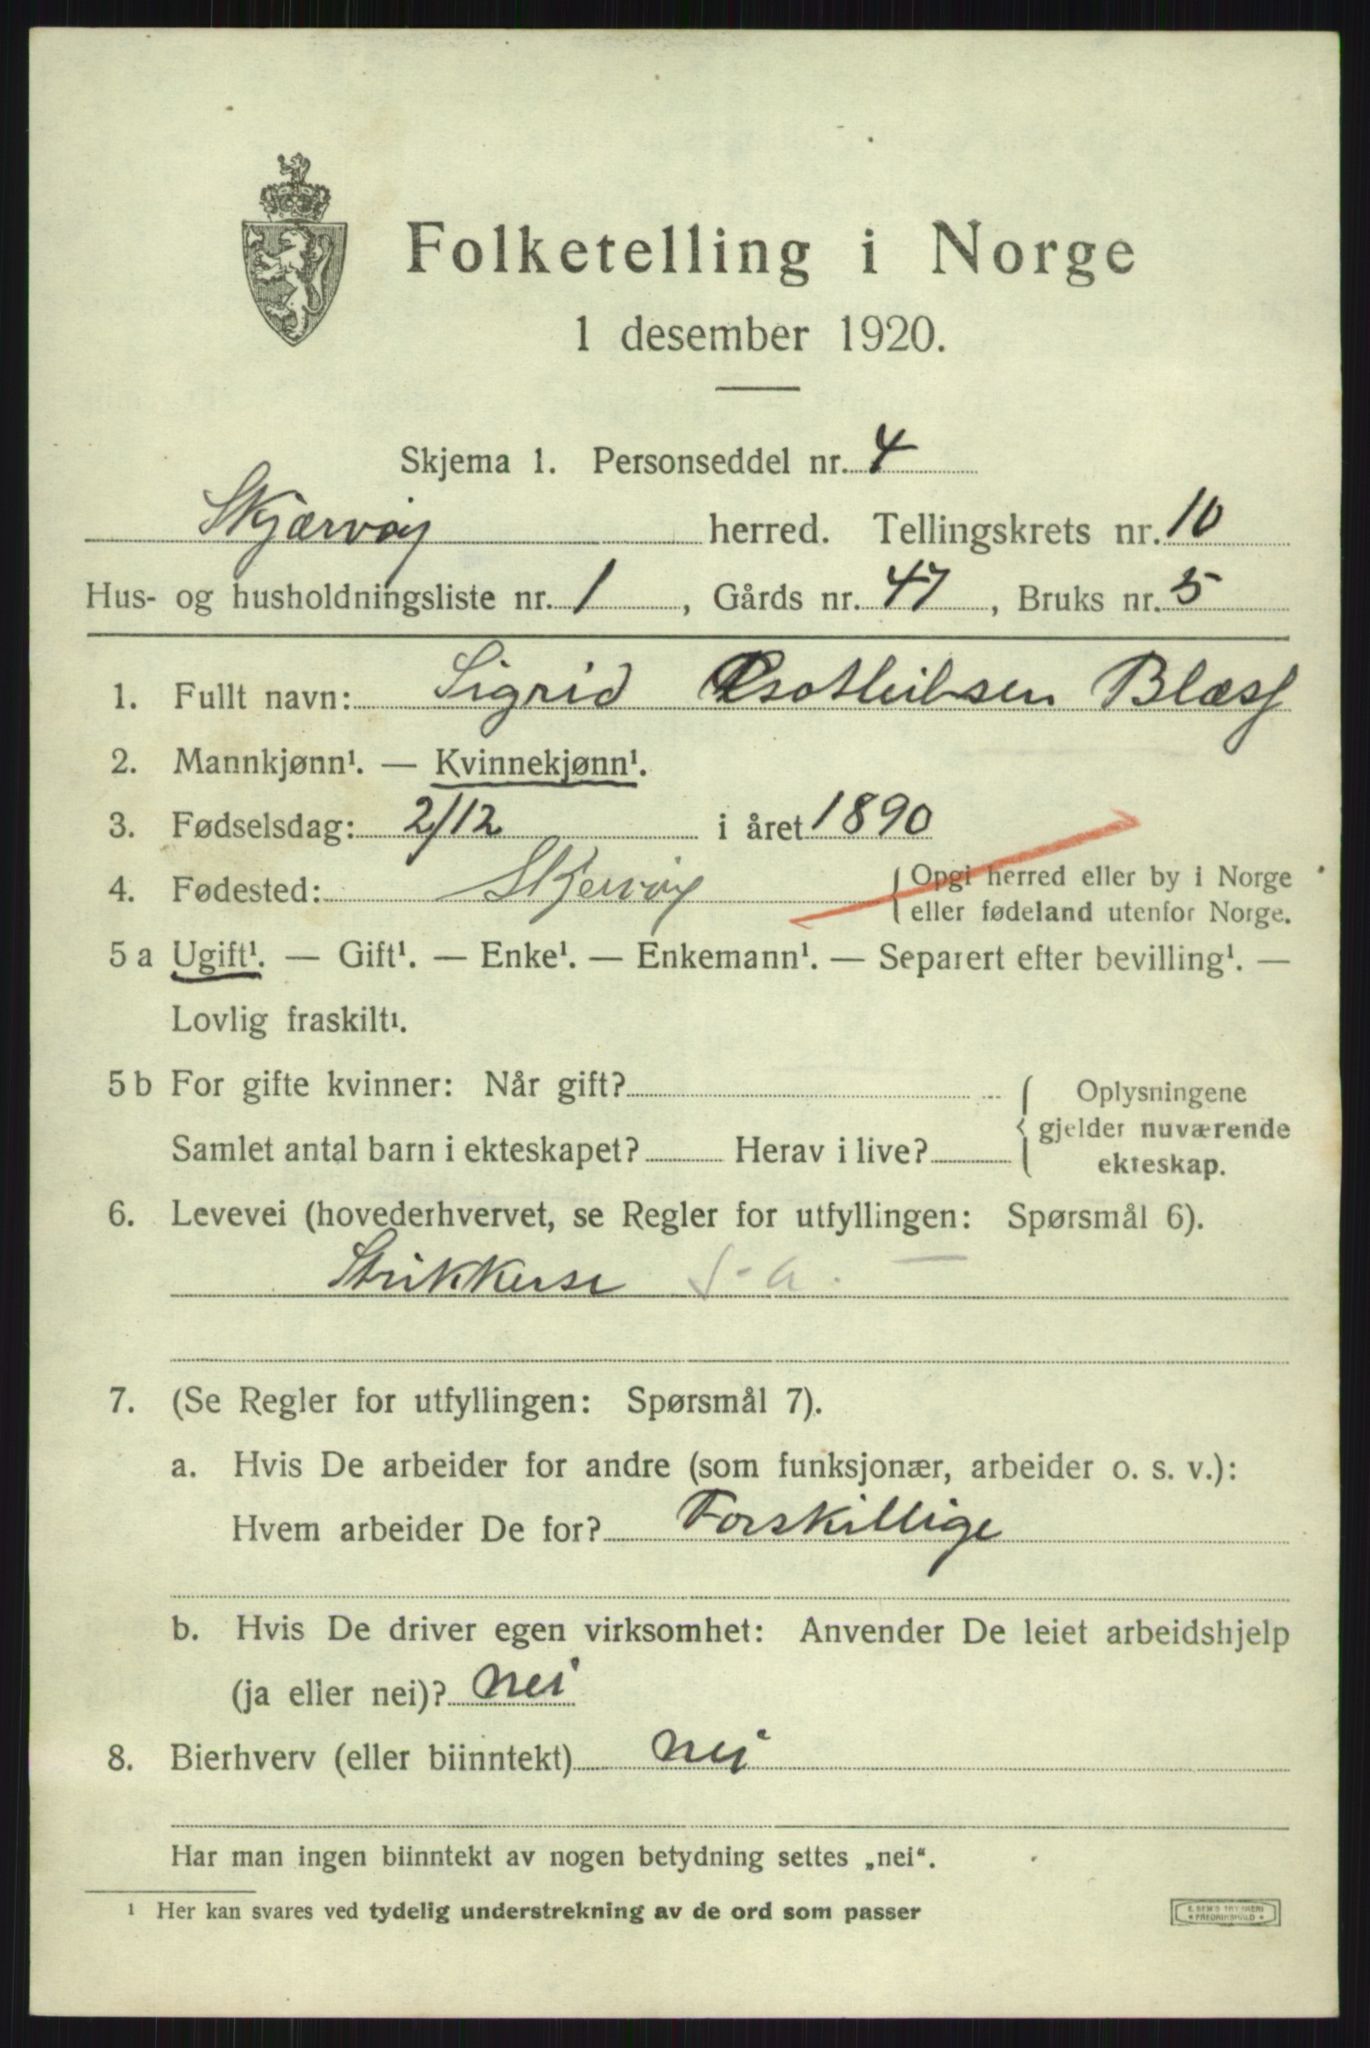 Folketelling i Norge
1 desember 1920.
Skjema 1. Personseddel nr. 4
Skjærvøy herred. Tellingskrets nr. 10
Hus- og husholdningsliste nr. 1, Gårds nr. 47, Bruks nr. 5
1. Fullt navn: Sigrid
2. Mannkjønn¹. — Kvinnekjønn¹.
3. Fødselsdag: 2/12 i året 1890
4. Fødested: Skjervøy { Opgi herred eller by i Norge
eller fødeland utenfor Norge.
5 a Ugift¹. — Gift¹. — Enke¹. — Enkemann¹. — Separert efter bevilling¹. —
Lovlig fraskilt¹.
5 b For gifte kvinner: Når gift? { Oplysningene
gjelder nuværende
Samlet antal barn i ekteskapet? Herav i live?
ekteskap.
6. Levevei (hovederhvervet, se Regler for utfyllingen: Spørsmål 6).
Strikkerse
7. (Se Regler for utfyllingen: Spørsmål 7).
a. Hvis De arbeider for andre (som funksjonær, arbeider o. s. v.):
Hvem arbeider De for? Forskillige
b. Hvis De driver egen virksomhet: Anvender De leiet arbeidshjelp
(ja eller nei)? nei
8. Bierhverv (eller biinntekt) nei
Har man ingen biinntekt av nogen betydning settes „nei“.
¹ Her kan svares ved tydelig understrekning av de ord som passer